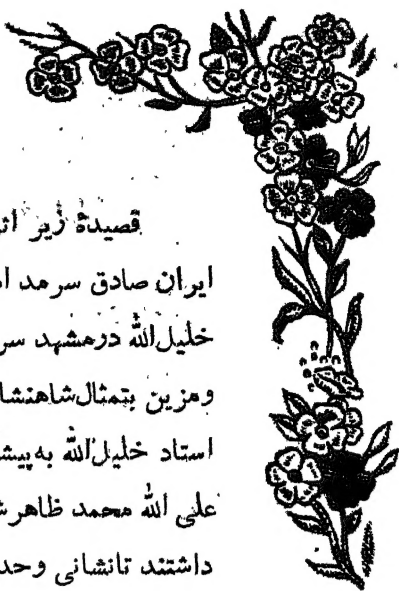 قصیدهٔ زیر اثر
ایران صادق سرمد ا
خلیل‌الله درمشهد سر
ومزین بتمثال‌شاهنشا
استاد خلیل‌الله به‌پیش
علی الله محمد ظاهرش
داشتند تانشانی وحد